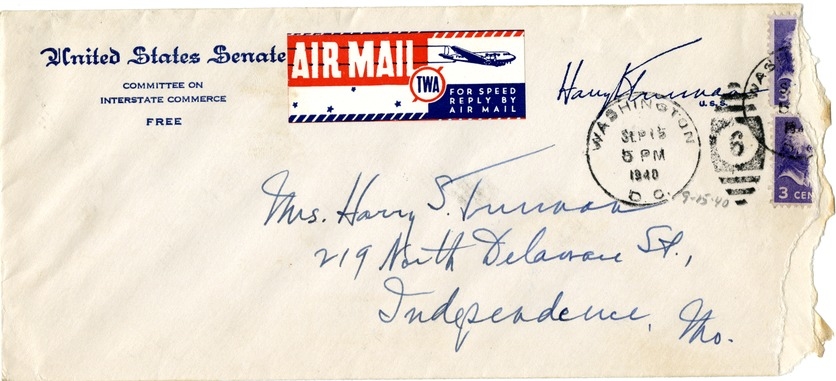 United States Senate
COMMITTEE ON
INTERSTATE COMMERCE
FREE
AIR MAIL
TWA
FOR SPEED
REPLY BY
AIR MAIL
Harry S. Truman
U.S.S.
WASHINGTON
SEP 15
5 PM
1940
D.C.
6
WAS
3 CEN
9-15-40
Mrs. Harry S. Truman
219 North Delaware St.,
Independence, Mo.